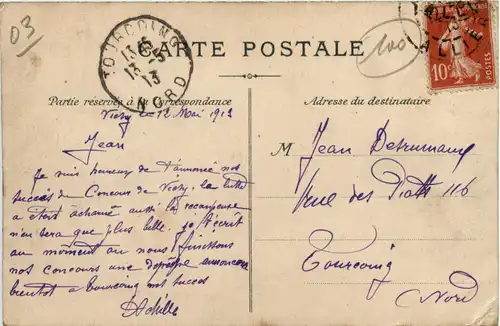 03
TOURCOING
13-5
13
NORD
CARTE POSTALE
100
10c
POSTES
Partie réservée à la Correspondance
Adresse du destinataire
Vichy le 12 Mai 1912
Jean
Je suis heureux de t'annoncé nos
succès du Concour de Vichy. la lutte
a étais acharné aussi la recompense
n'en sera que plus belle. je t'écrit
au moment ou nous finissons
nos concours une depeche annoncera
bientôt a Tourcoing nos succès
Achille
M Jean Destrumaux
rue des Piats 116
Tourcoing
Nord